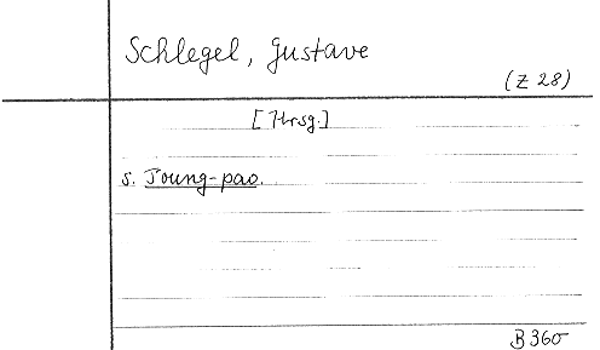 Schlegel, Gustave
(Z 28)
[Hrsg.]
s. Toung-pao.
B 360